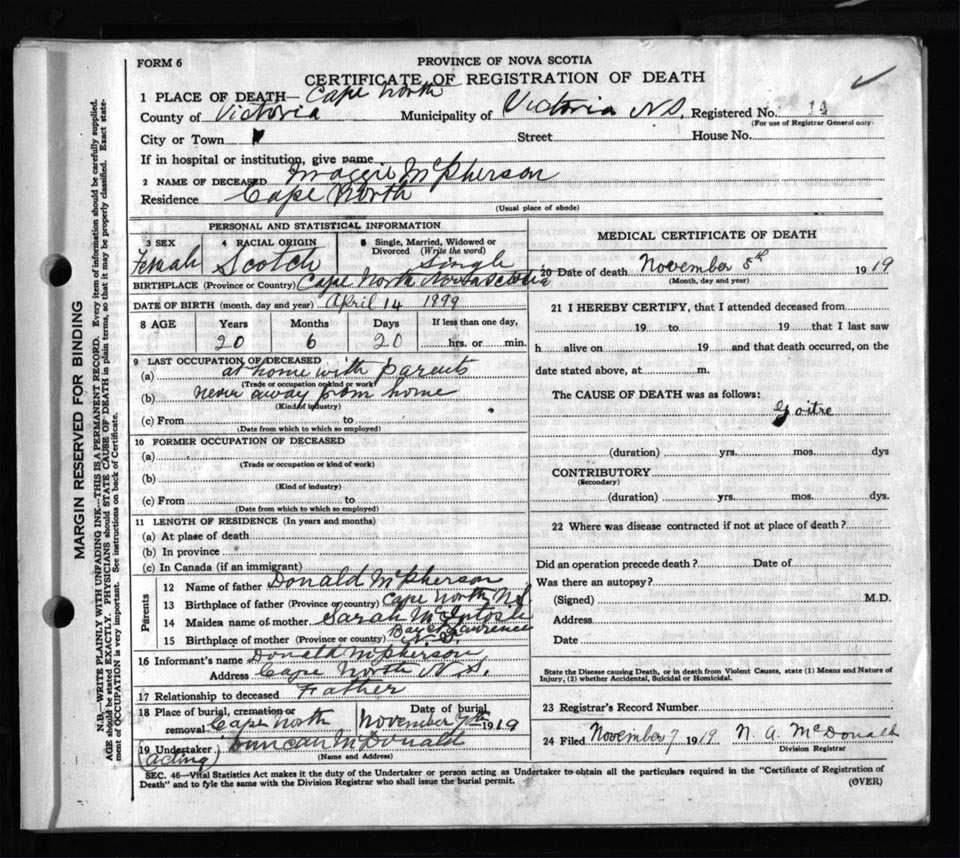 FORM 6
PROVINCE OF NOVA SCOTIA
CERTIFICATE OF REGISTRATION OF DEATH
1 PLACE OF DEATH— Cape North
County of Victoria Municipality of Victoria N.S. Registered No. 14
(For use of Registrar General only)
City or Town Street House No.
If in hospital or institution, give name
2 NAME OF DECEASED Maggie McPherson
Residence Cape North
(Usual place of abode)
PERSONAL AND STATISTICAL INFORMATION
3 SEX Female
4 RACIAL ORIGIN Scotch
5 Single, Married, Widowed or Divorced (Write the word) Single
BIRTHPLACE (Province or Country) Cape North Nova Scotia
DATE OF BIRTH (month, day and year) April 14 1899
8 AGE Years Months Days If less than one day,
20 6 20 hrs. or min.
9 LAST OCCUPATION OF DECEASED
(a) at home with parents
(Trade or occupation or kind of work)
(b) never away from home
(Kind of industry)
(c) From to
(Date from which to which so employed)
10 FORMER OCCUPATION OF DECEASED
(a)
(Trade or occupation or kind of work)
(b)
(Kind of industry)
(c) From to
(Date from which to which so employed)
11 LENGTH OF RESIDENCE (In years and months)
(a) At place of death
(b) In province
(c) In Canada (if an immigrant)
Parents
12 Name of father Donald McPherson
13 Birthplace of father (Province or country) Cape North N.S.
14 Maiden name of mother Sarah McIntosh
15 Birthplace of mother (Province or country) Bay St Lawrence N.S.
16 Informant's name Donald McPherson
Address Cape North N.S.
17 Relationship to deceased Father
18 Place of burial, cremation or removal Cape North
Date of burial November 7th 1919
19 Undertaker (acting) Duncan McDonald
(Name and Address)
MEDICAL CERTIFICATE OF DEATH
20 Date of death November 5th 1919
(Month, day and year)
21 I HEREBY CERTIFY, that I attended deceased from
19 to 19 that I last saw
h alive on 19 and that death occurred, on the
date stated above, at m.
The CAUSE OF DEATH was as follows:
Goitre
(duration) yrs. mos. dys
CONTRIBUTORY
(Secondary)
(duration) yrs. mos. dys.
22 Where was disease contracted if not at place of death?
Did an operation precede death? Date of
Was there an autopsy?
(Signed) M.D.
Address
Date
State the Disease causing Death, or in death from Violent Causes, state (1) Means and Nature of
Injury, (2) whether Accidental, Suicidal or Homicidal.
23 Registrar's Record Number
24 Filed November 7 1919 N. A. McDonald
Division Registrar
SEC. 46—Vital Statistics Act makes it the duty of the Undertaker or person acting as Undertaker to obtain all the particulars required in the "Certificate of Registration of
Death" and to fyle the same with the Division Registrar who shall issue the burial permit.
(OVER)
MARGIN RESERVED FOR BINDING
N.B.—WRITE PLAINLY WITH UNFADING INK—THIS IS A PERMANENT RECORD. Every item of information should be carefully supplied.
AGE should be stated EXACTLY. PHYSICIANS should STATE CAUSE OF DEATH in plain terms, so that it may be properly classified. Exact state-
ment of OCCUPATION is very important. See instructions on back of Certificate.